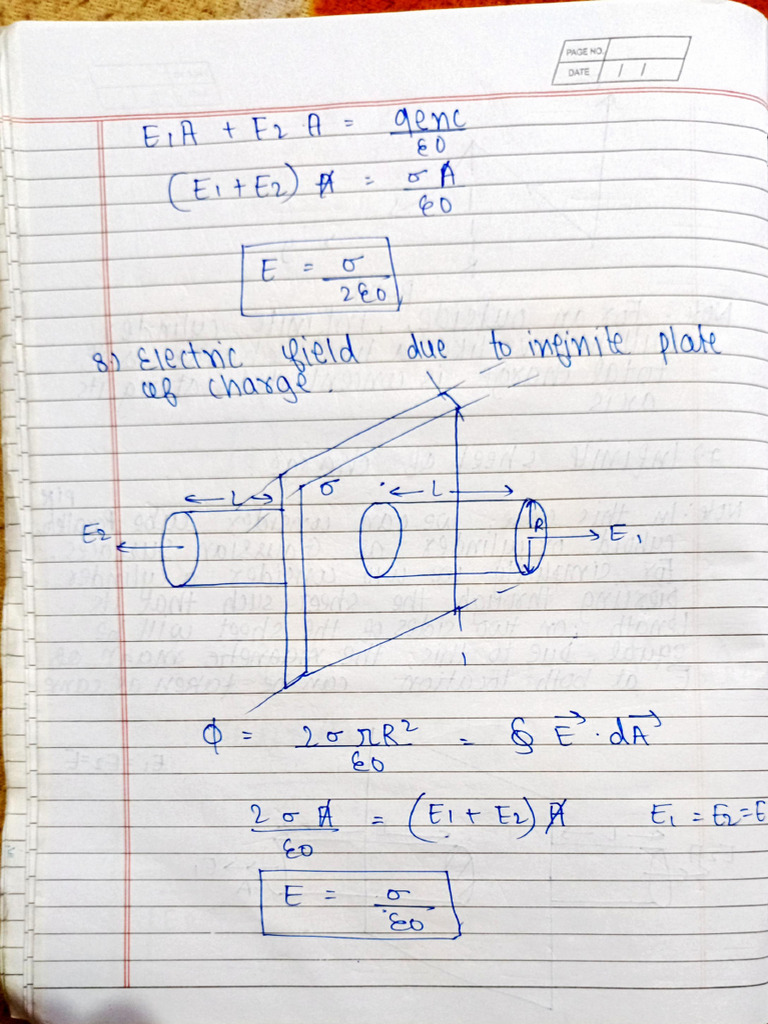 PAGE NO.
DATE / /
E1A + E2 A = qenc/ε0
(E1 + E2) A = σA/ε0
E = σ/2ε0
8) Electric field due to infinite plate
of charge.
L σ L
E2 R E1
Φ = 2σπR²/ε0 = ∮ E⃗ · dA⃗
2σA/ε0 = (E1 + E2) A E1 = E2 = E
E = σ/ε0